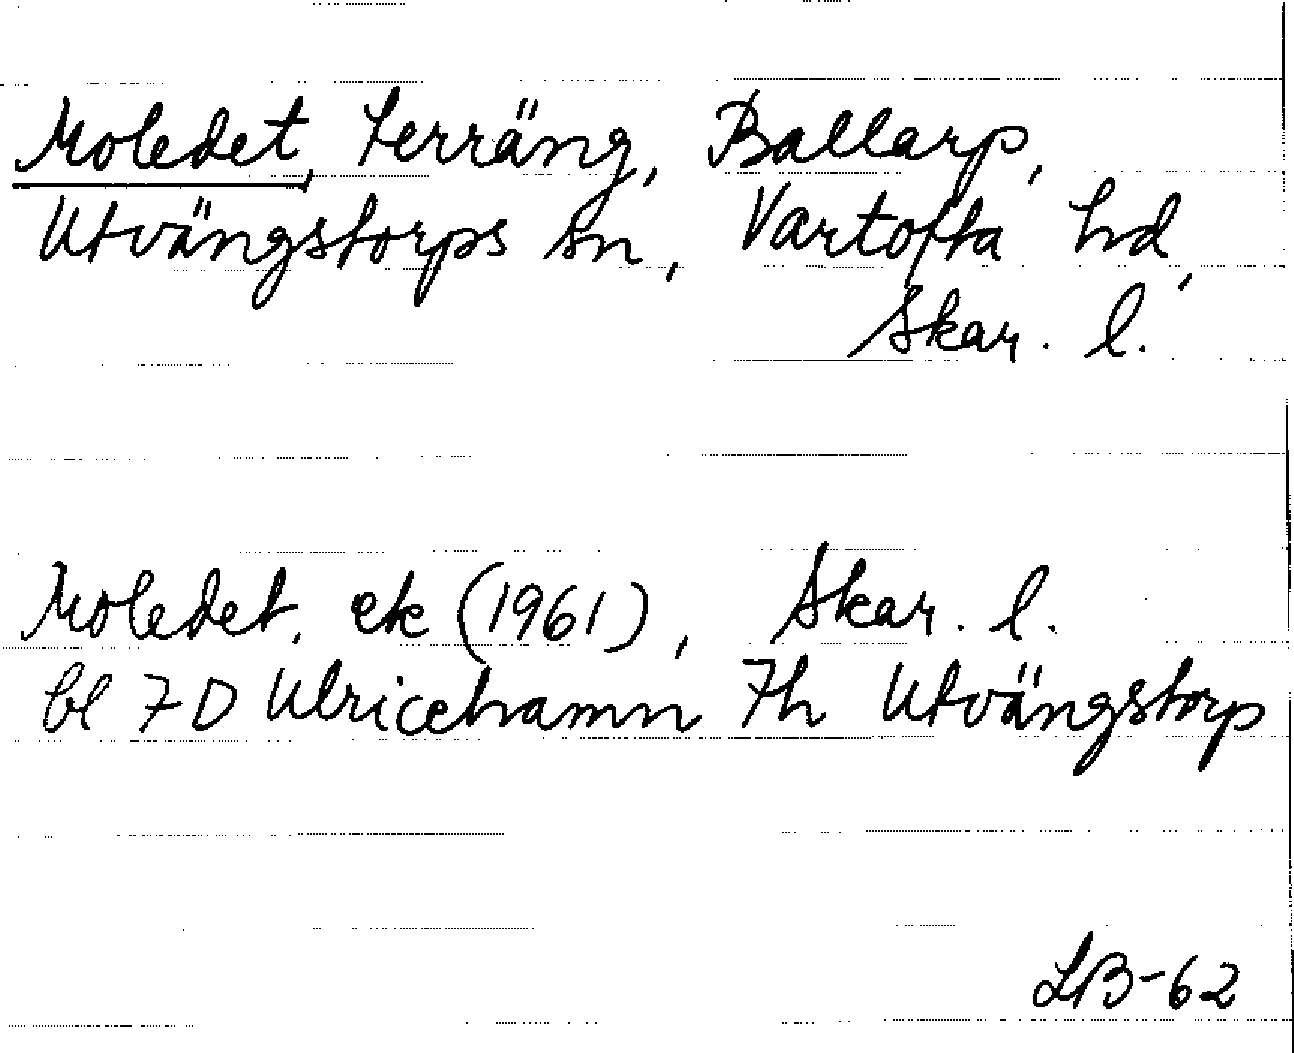 Moledet, terräng, Ballarp,
Utvängstorps sn, Vartofta hd,
Skar. l.
Moledet, ek (1961), Skar. l.
bl 7D Ulricehamn 7h Utvängstorp
LB-62